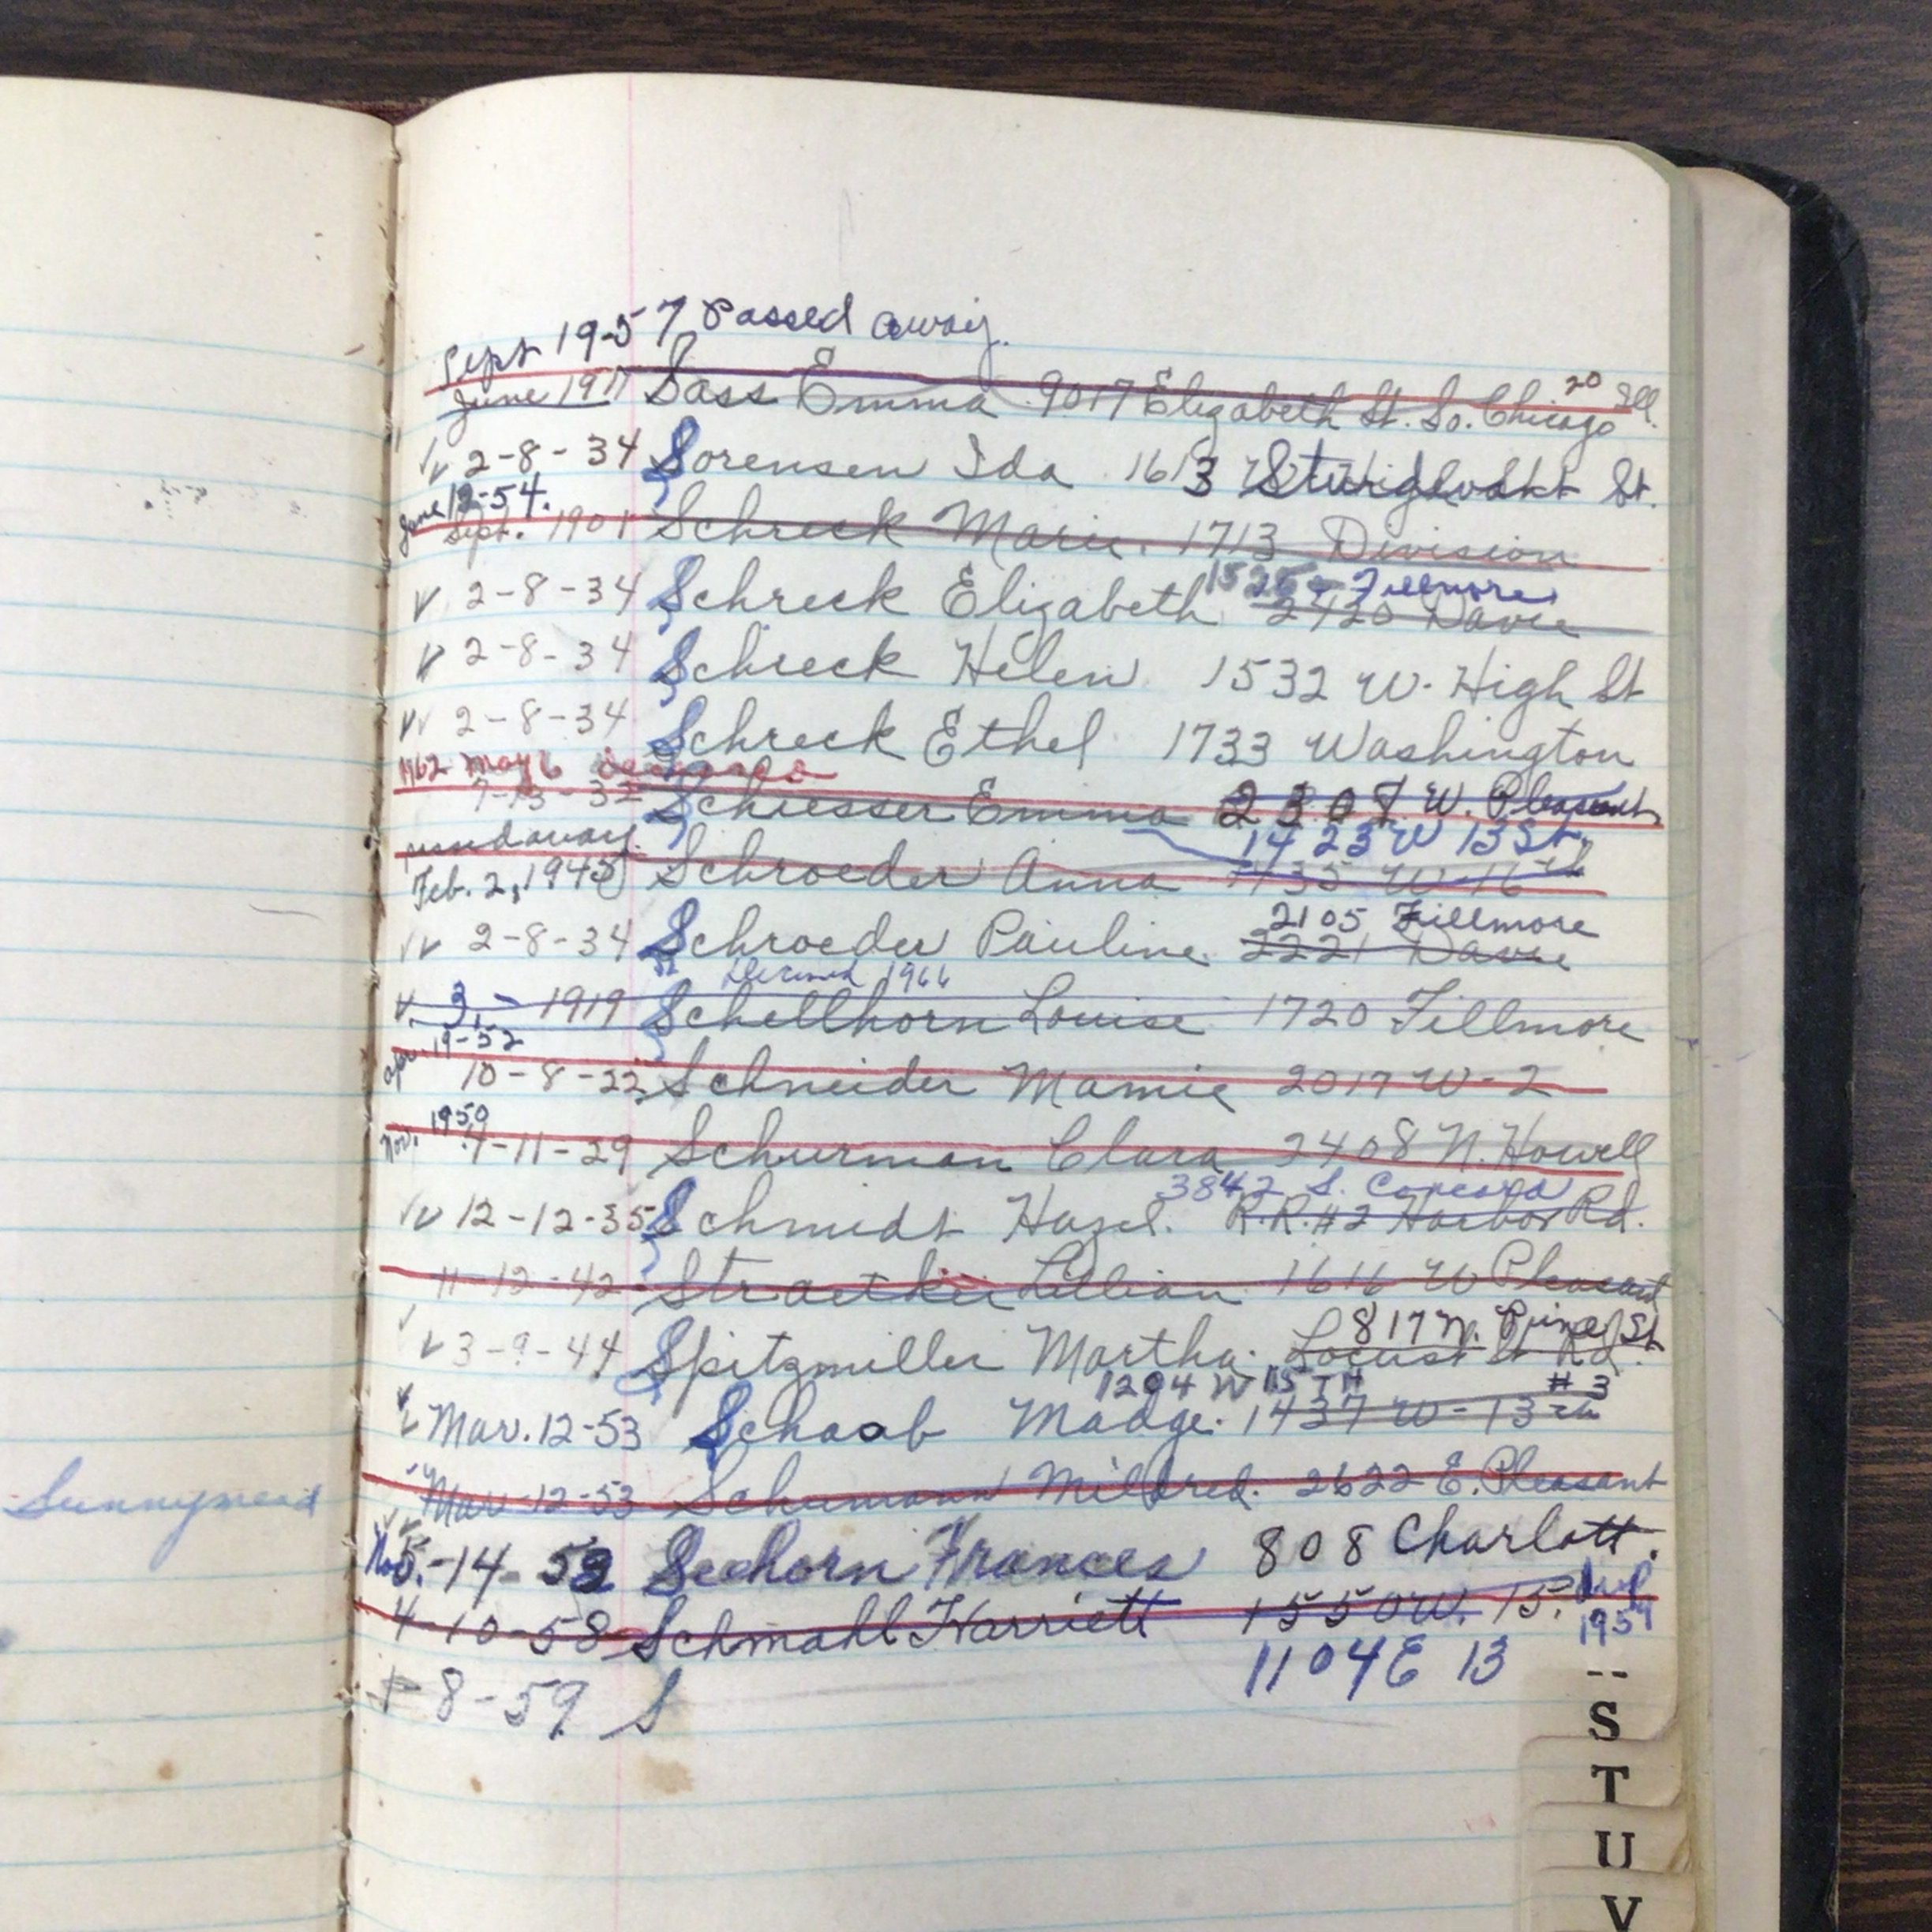 Sept 19-57 Passed away.
June 1917 Sass Emma 9017 Elizabeth St. So. Chicago 20 Ill.
2-8-34 Sorensen Ida 1613 St.
June 12-54.
Sept. 1901 Schreck Marie. 1713 Division
1525 Fillmore
2-8-34 Schreck Elizabeth 2420 Davie
2-8-34 Schreck Helen 1532 W. High St
2-8-34 Schreck Ethel 1733 Washington
1962 May 6 deceased
7-13-32 Schiesser Emma 2307 W. Pleasant
away. 1423 W 13 St.
Feb. 2, 1945 Schroeder Anna 1435 W-16th
2105 Fillmore
2-8-34 Schroeder Pauline 2221 Davie
Deceased 1966
3, - 1919 Schellhorn Louise 1720 Fillmore
Apr. 19-52
10-8-22 Schneider Mamie 2017 W-2
Nov. 1950
4-11-29 Schurman Clara 2408 N. Howell
3842 S. Concord
12-12-35 Schmidt Hazel. R.R.#2 Harbor Rd.
11-12-42 Straetker Lillian 1616 W Pleasant
817 N. Pine St
3-9-44 Spitzmiller Martha. Locust St Rd.
1204 W 15TH #3
Mar. 12-53 Schaab Madge. 1437 W-13th
Mar 12-53 Schumann Mildred. 2622 E. Pleasant
Sunnymead
Nov. -14-53 Seehorn Frances 808 Charlott.
4-10-58 Schmahl Harriett 1550 W. 15.
1959
1104 E 13
8-59 S
--
S
T
U
V